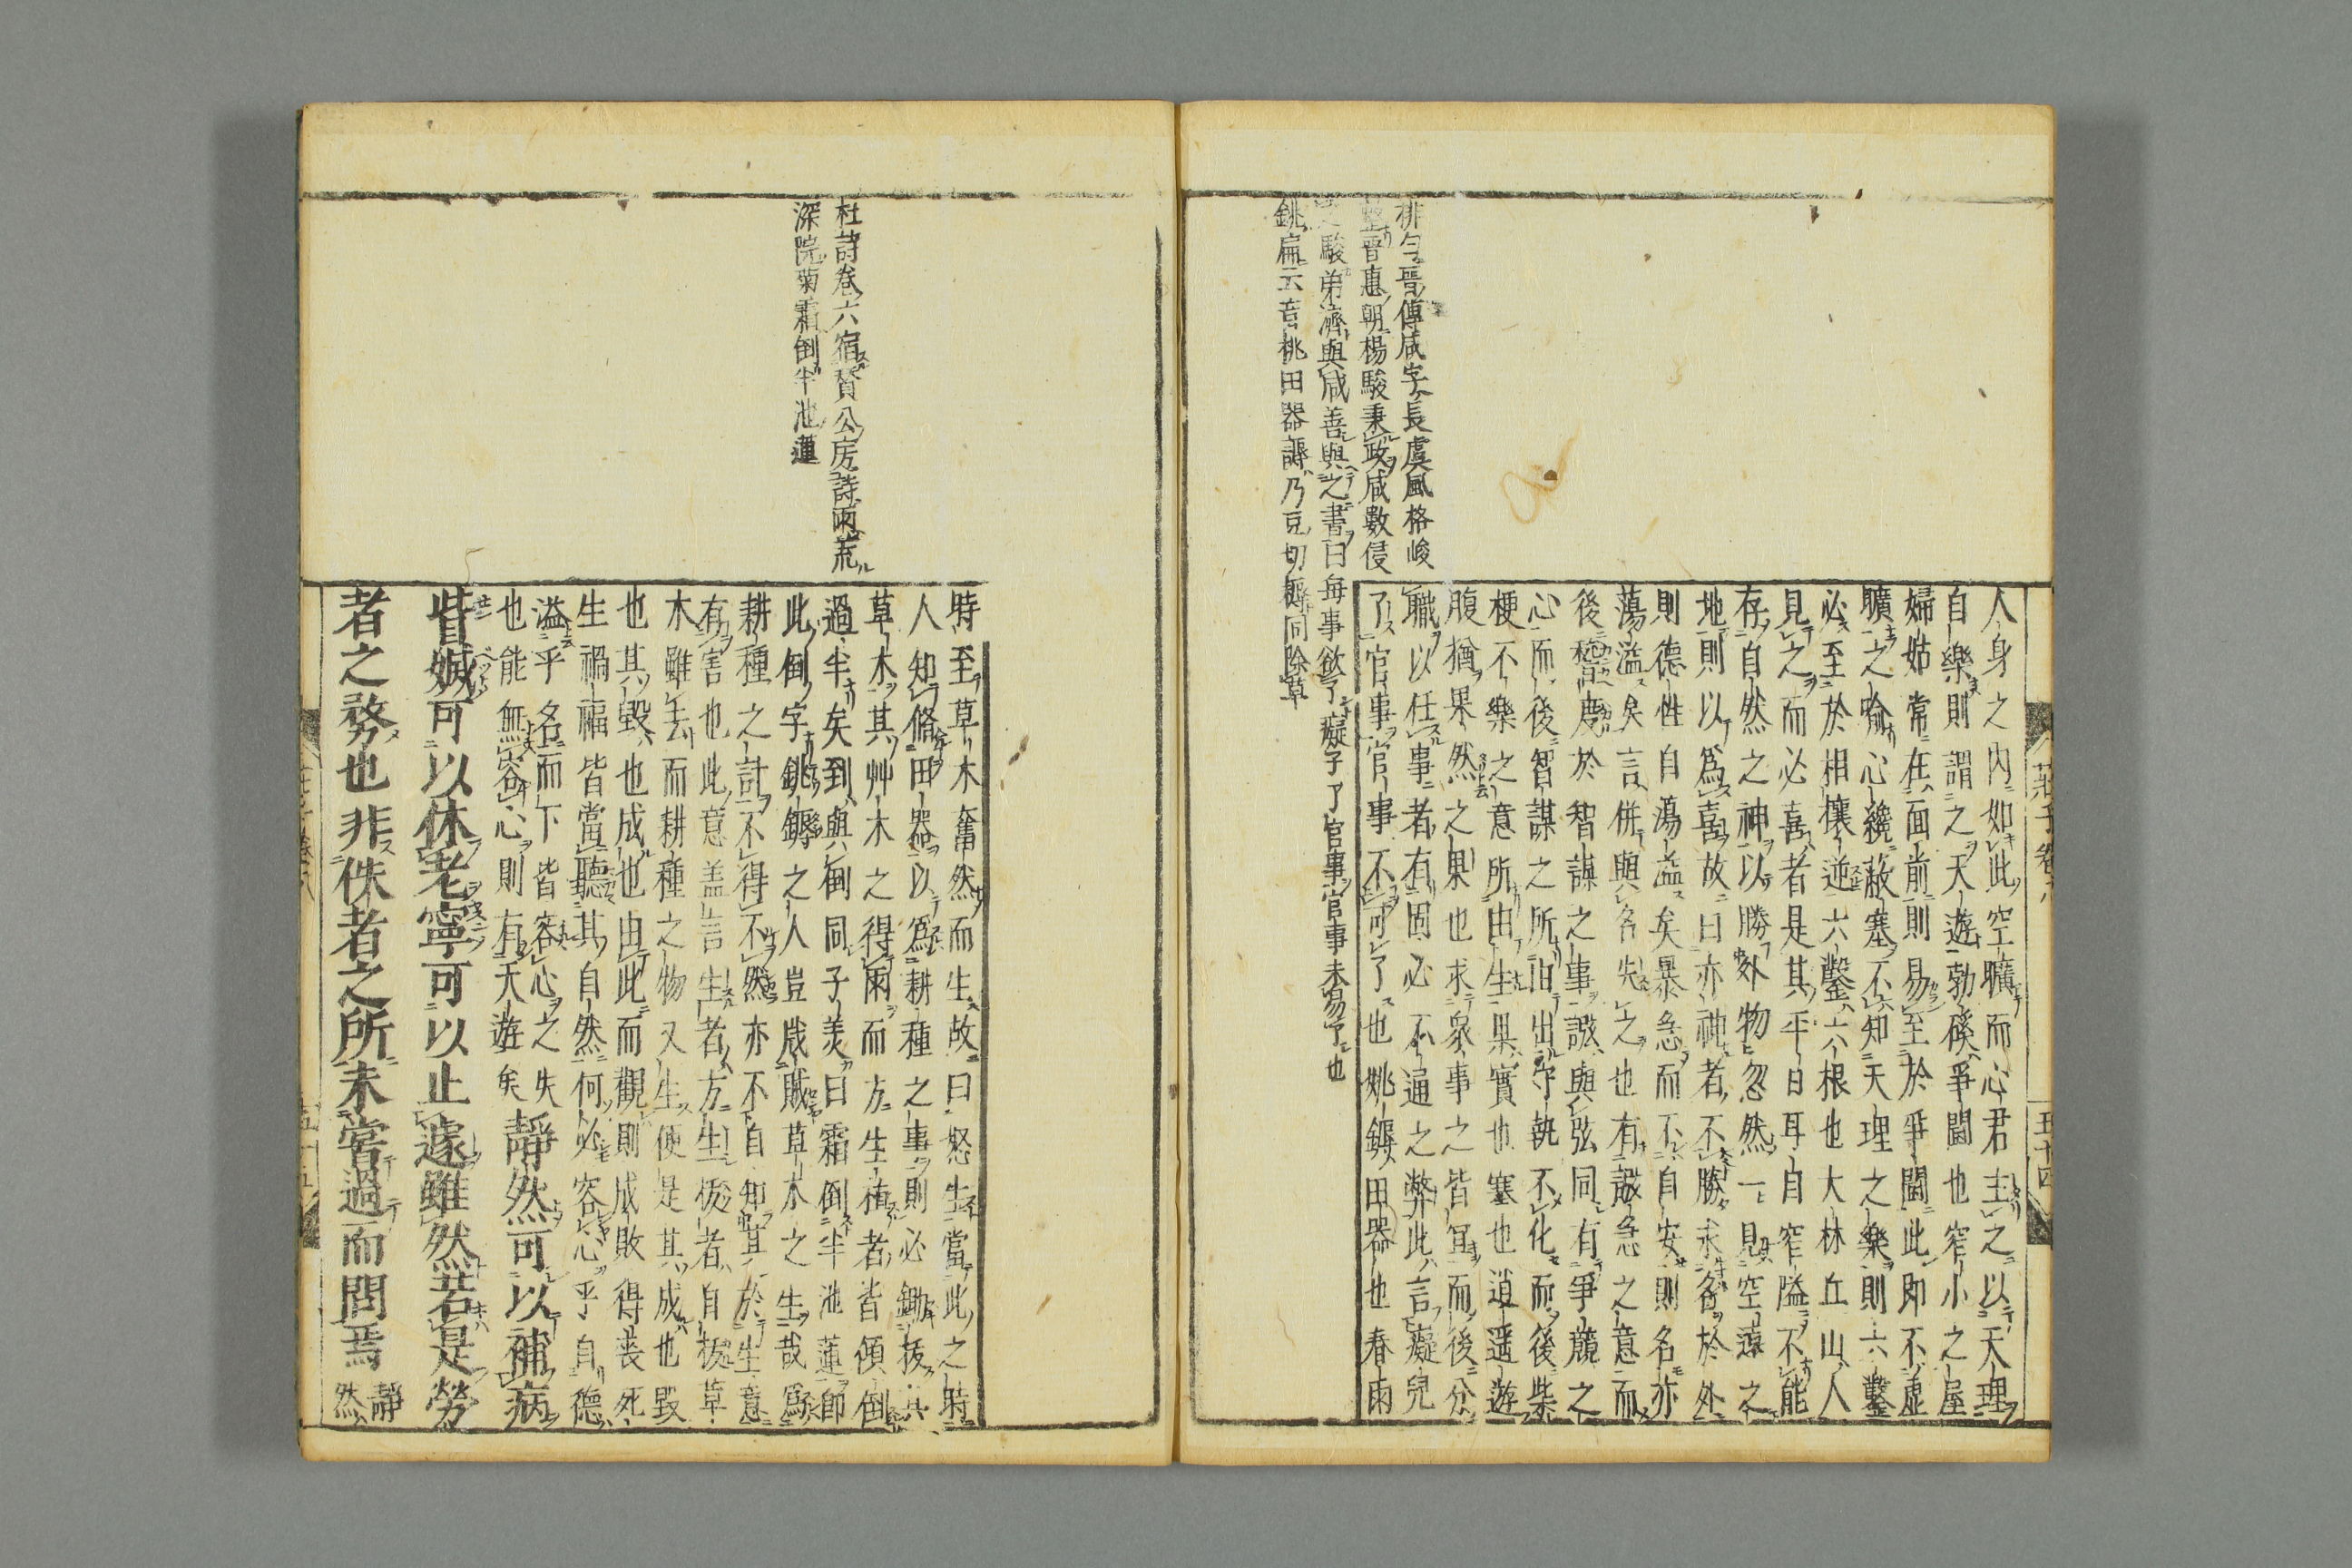 排勻晋傅咸字長虞風格峻
整晋惠朝楊駿秉政咸數侵
之駿弟濟與咸善與之書曰每事欲了癡子了官事官事未易了也
銚扁云音桃田器鎒乃豆切耨同除草
人身之内如此空曠而心君主之以天理
自樂則謂之天遊勃磎爭鬪也窄小之屋
婦姑常在面前則易至於爭鬪此即不虛
曠之喻心纔蔽塞不知天理之樂則六鑿
必至於相攘逆六鑿六根也大林丘山人
見之而必喜者是其平日耳目窄隘不能
存自然之神以勝外物忽然一見空遠之
地則以爲喜故曰亦神者不勝永各於外
則德性自蕩溢矣暴急而不自安則名亦
蕩溢矣言併與名失之也有誸急之意而
後稽度於智謀之事誸與弦同有爭競之
心而後智謀之所由出守執不化而後柴
梗不樂之意所由生果實也塞也逍遥遊
腹猶果然之果也求衆事之皆宜而後分
職以任事者有固必不通之弊此言癡兒
了官事官事不可了也銚鎒田器也春雨
莊子卷八
五十四
杜詩卷六宿賛公房詩雨荒
深院菊霜倒半池蓮
時至草木奮然而生故曰怒生當此之時
人知脩田器以爲耕種之事則必鋤拔其
草木其艸木之得雨而方生植者皆傾倒
過半矣到與倒同子美曰霜倒半池蓮即
此倒字銚鎒之人豈戕賊草木之生哉爲
耕種之計不得不然亦不自知其於生意
有害也此意盖言生者方生拔者自拔草
木雖去而耕種之物又生便是其成也毀
也其毀也成也由此而觀則成敗得喪死
生禍福皆當聽其自然何必容心乎自德
溢乎名而下皆容心之失
也能無容心則有天遊矣
靜然可以補病
眥𡟬可以休老寧可以止遽雖然若是勞
者之務也非佚者之所未嘗過而問焉
靜
然